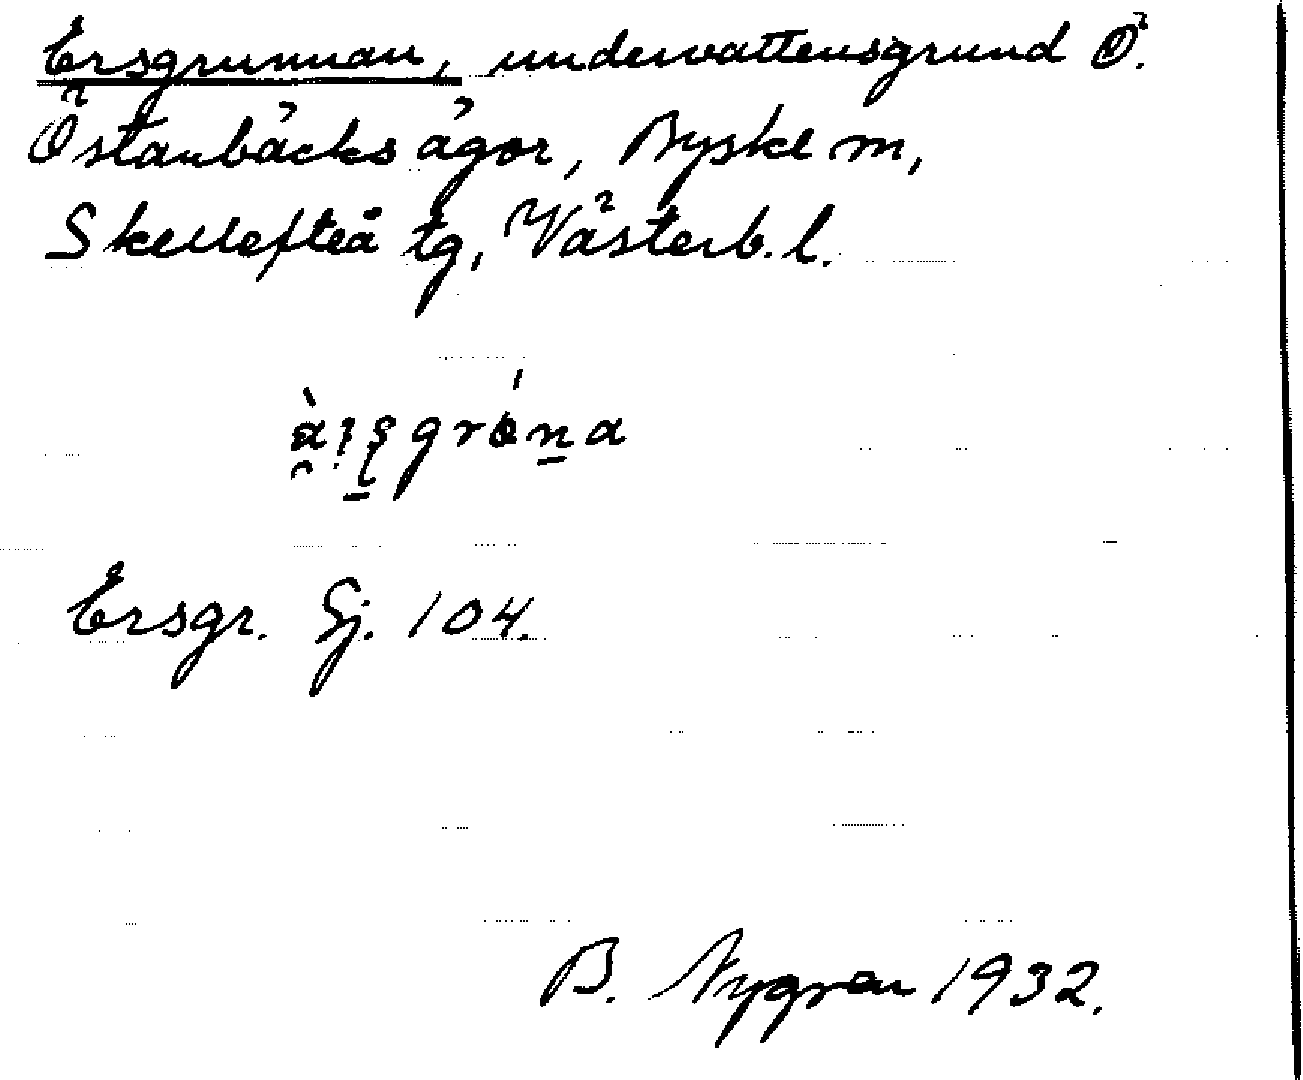 Ersgrunnan, undervattensgrund Ö.
Östanbäcks ägor, Byske m,
Skellefteå tg, Västerb. l.
Ersgr. Sj. 104.
B. Nygren 1932.